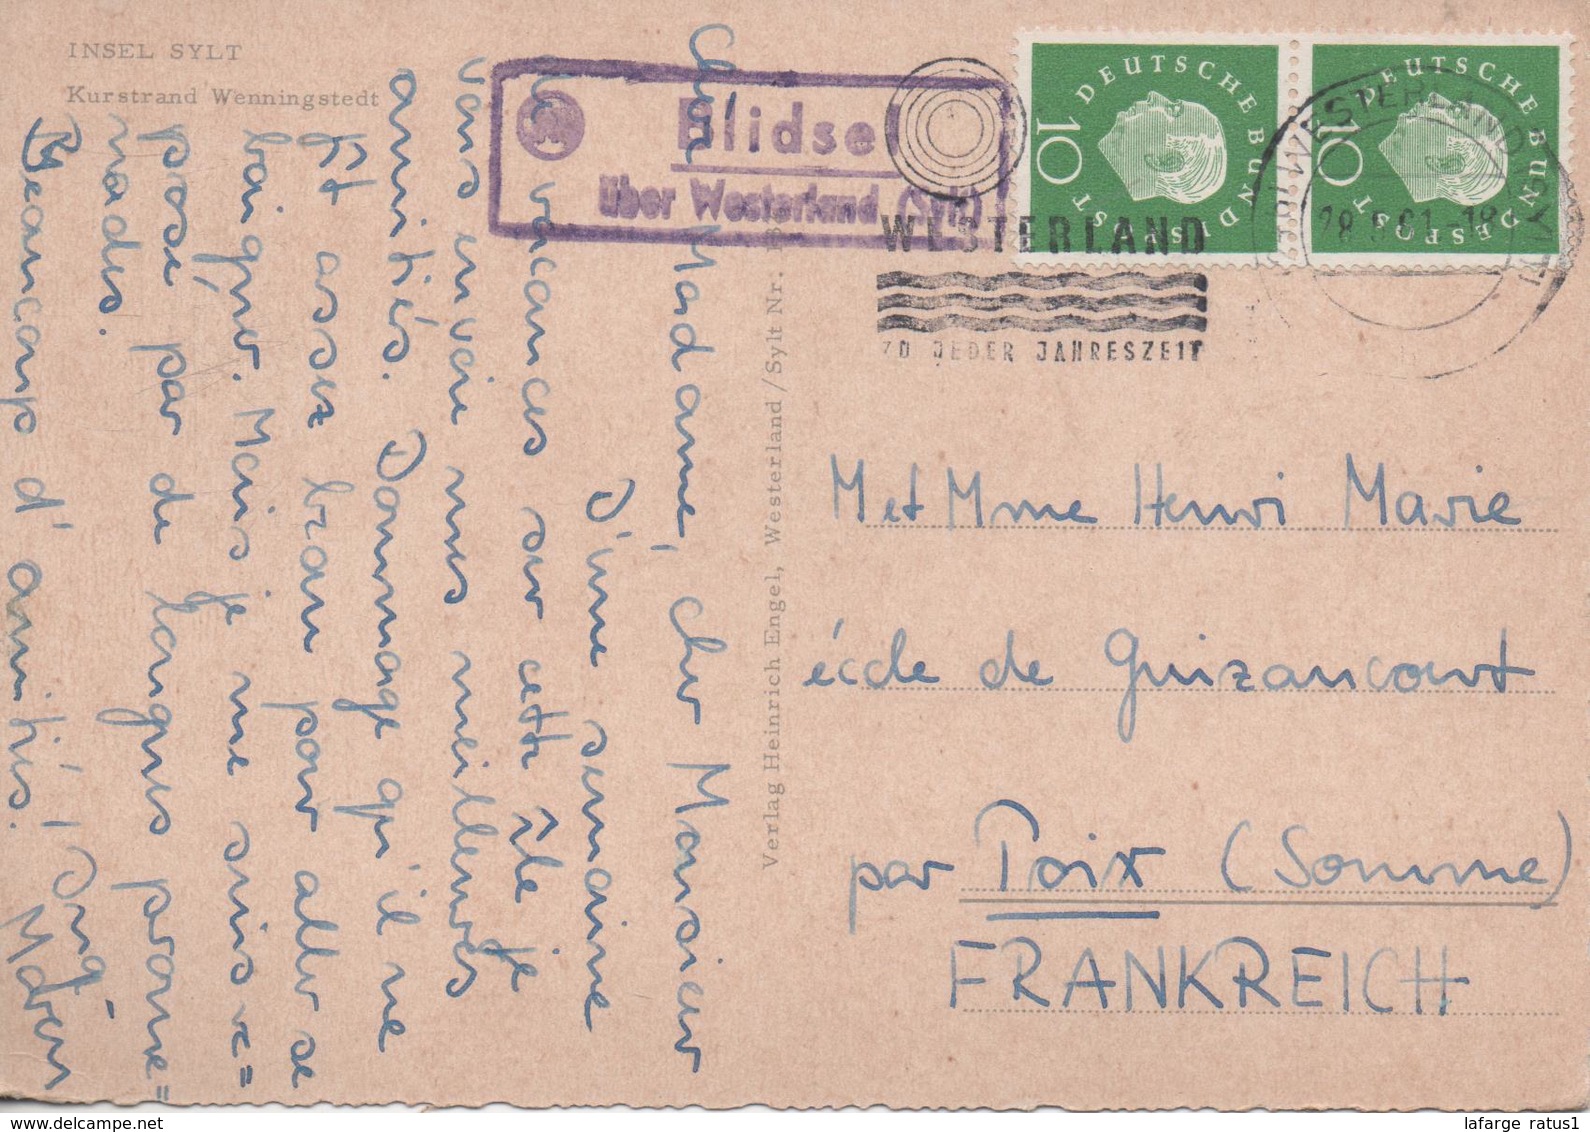 INSEL SYLT
Kurstrand Wenningstedt
Blidsel
über Westerland (Sylt)
WESTERLAND
ZU JEDER JAHRESZEIT
DEUTSCHE BUNDESPOST
10
DEUTSCHE BUNDESPOST
10
WESTERLAND (SYLT)
Verlag Heinrich Engel, Westerland / Sylt Nr.
Chère Madame, cher Monsieur
D'une semaine
de vacances sur cette île je
vous envoie mes meilleures
amitiés. Dommage qu'il ne
fît assez beau pour aller se
baigner. Mais je me suis re=
posé par de longues prome=
nades.
Beaucoup d'amitiés.
Maren
M et Mme Henri Marie
école de Guizancourt
par Poix (Somme)
FRANKREICH
lafarge ratus1